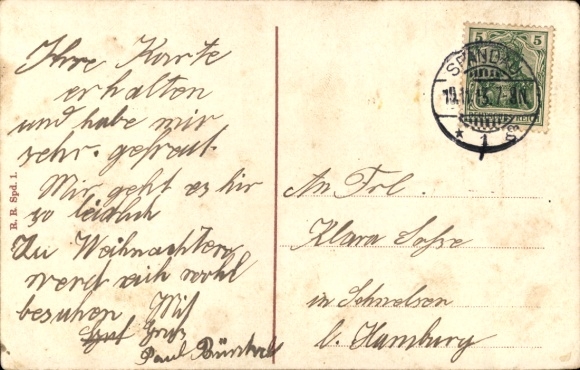 Ihre Karte
erhalten
und habe mir
sehr. gefreut.
Mir geht es hir
so leidlich
Zu Weihnachten
werd sich wohl
besuhen Mit
Gruß
Paul
R. R. Spd. 1.
5 5
SPANDAU
1
An Frl.
Klara
in Schnelsen
b. Hamburg